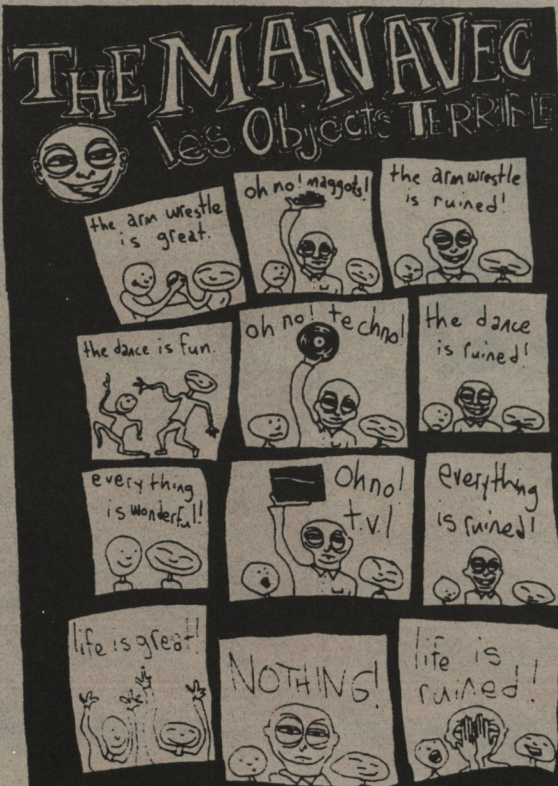 THE MANAVEC
les Objects TERRIBLE
the arm wrestle
is great.
oh no! maggots!
the arm wrestle
is ruined!
the dance is fun.
oh no! techno!
the dance
is ruined!
everything
is wonderful!
Oh no!
t.v.!
everything
is ruined!
life is great!
NOTHING!
life is
ruined!